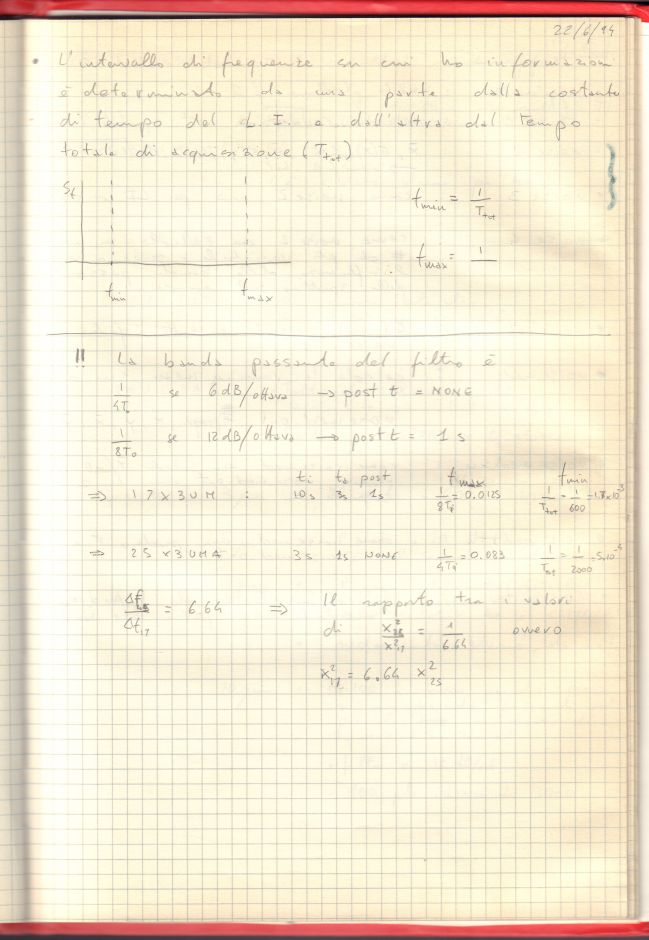 22/6/94
• L'intervallo di frequenze su cui ho informazioni
è determinato da una parte dalla costante
di tempo del L.I. e dall'altra dal tempo
totale di acquisizione (T_tot)
S_f
f_min = 1/T_tot
f_max = 1/
f_min f_max
!! La banda passante del filtro è
1/4T₀ se 6dB/ottava → post t = NONE
1/8T₀ se 12dB/ottava → post t = 1 s
ti to post f_max f_min
⇒ 17x3UM : 10s 3s 1s 1/8Ti = 0.0125 1/T_tot = 1/600 = 1.7x10⁻³
⇒ 25x3UMA 3s 1s NONE 1/4Ti = 0.083 1/T_tot = 1/2000 = 5x10⁻⁴
Δf₂₅/Δf₁₇ = 6.64 ⇒ Il rapporto tra i valori
di x²₂₅/x²₁₇ = 1/6.64 ovvero
x²₁₇ = 6.64 x²₂₅